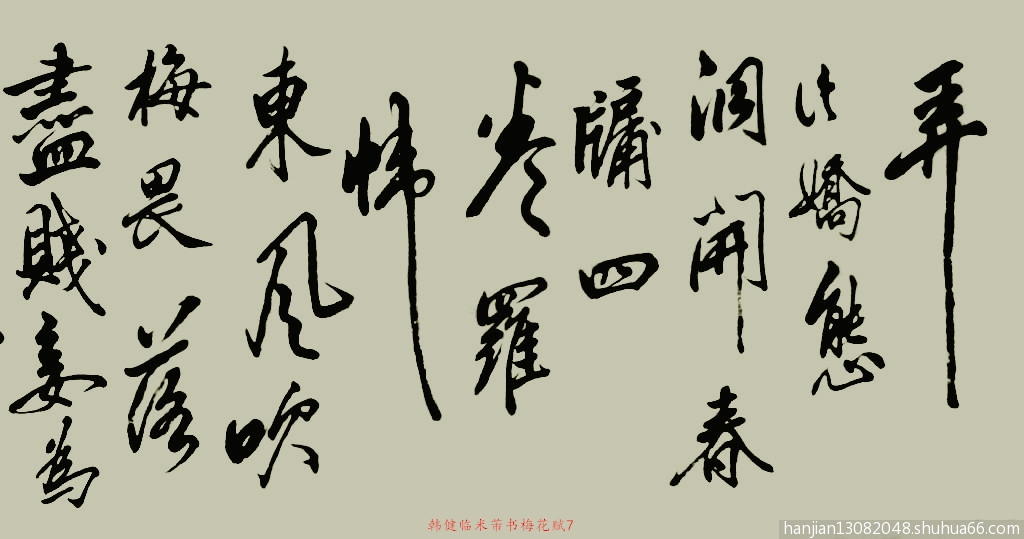 弄
此嬌態
洞開春
牖四
卷羅
幃
東風吹
梅畏落
盡賤妾為
韩健临米芾书梅花赋7
hanjian13082048.shuhua66.com